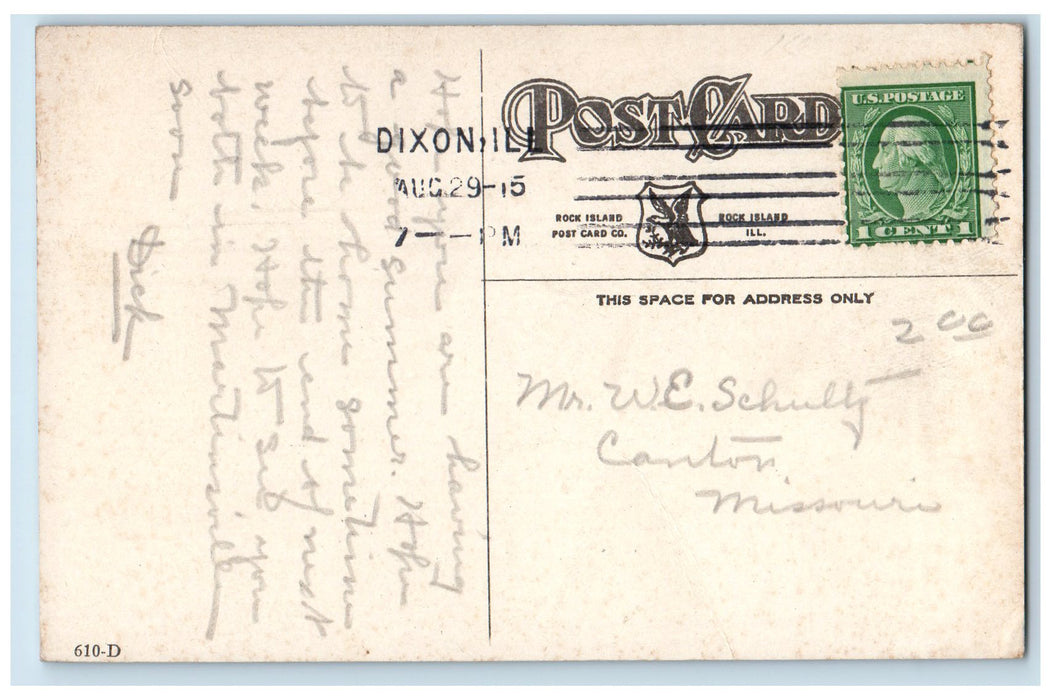 POST CARD
U.S. POSTAGE
1 CENT 1
DIXON, ILL
AUG 29-15
7 - PM
ROCK ISLAND
POST CARD CO.
ROCK ISLAND
ILL.
THIS SPACE FOR ADDRESS ONLY
2 00
Mr. W. E. Schultz
Canton
Missouri
Hope you are having
a good summer. Hope
to be home sometime
before the end of next
week. Hope to see you
both in Martinsville
soon
Dick
610-D